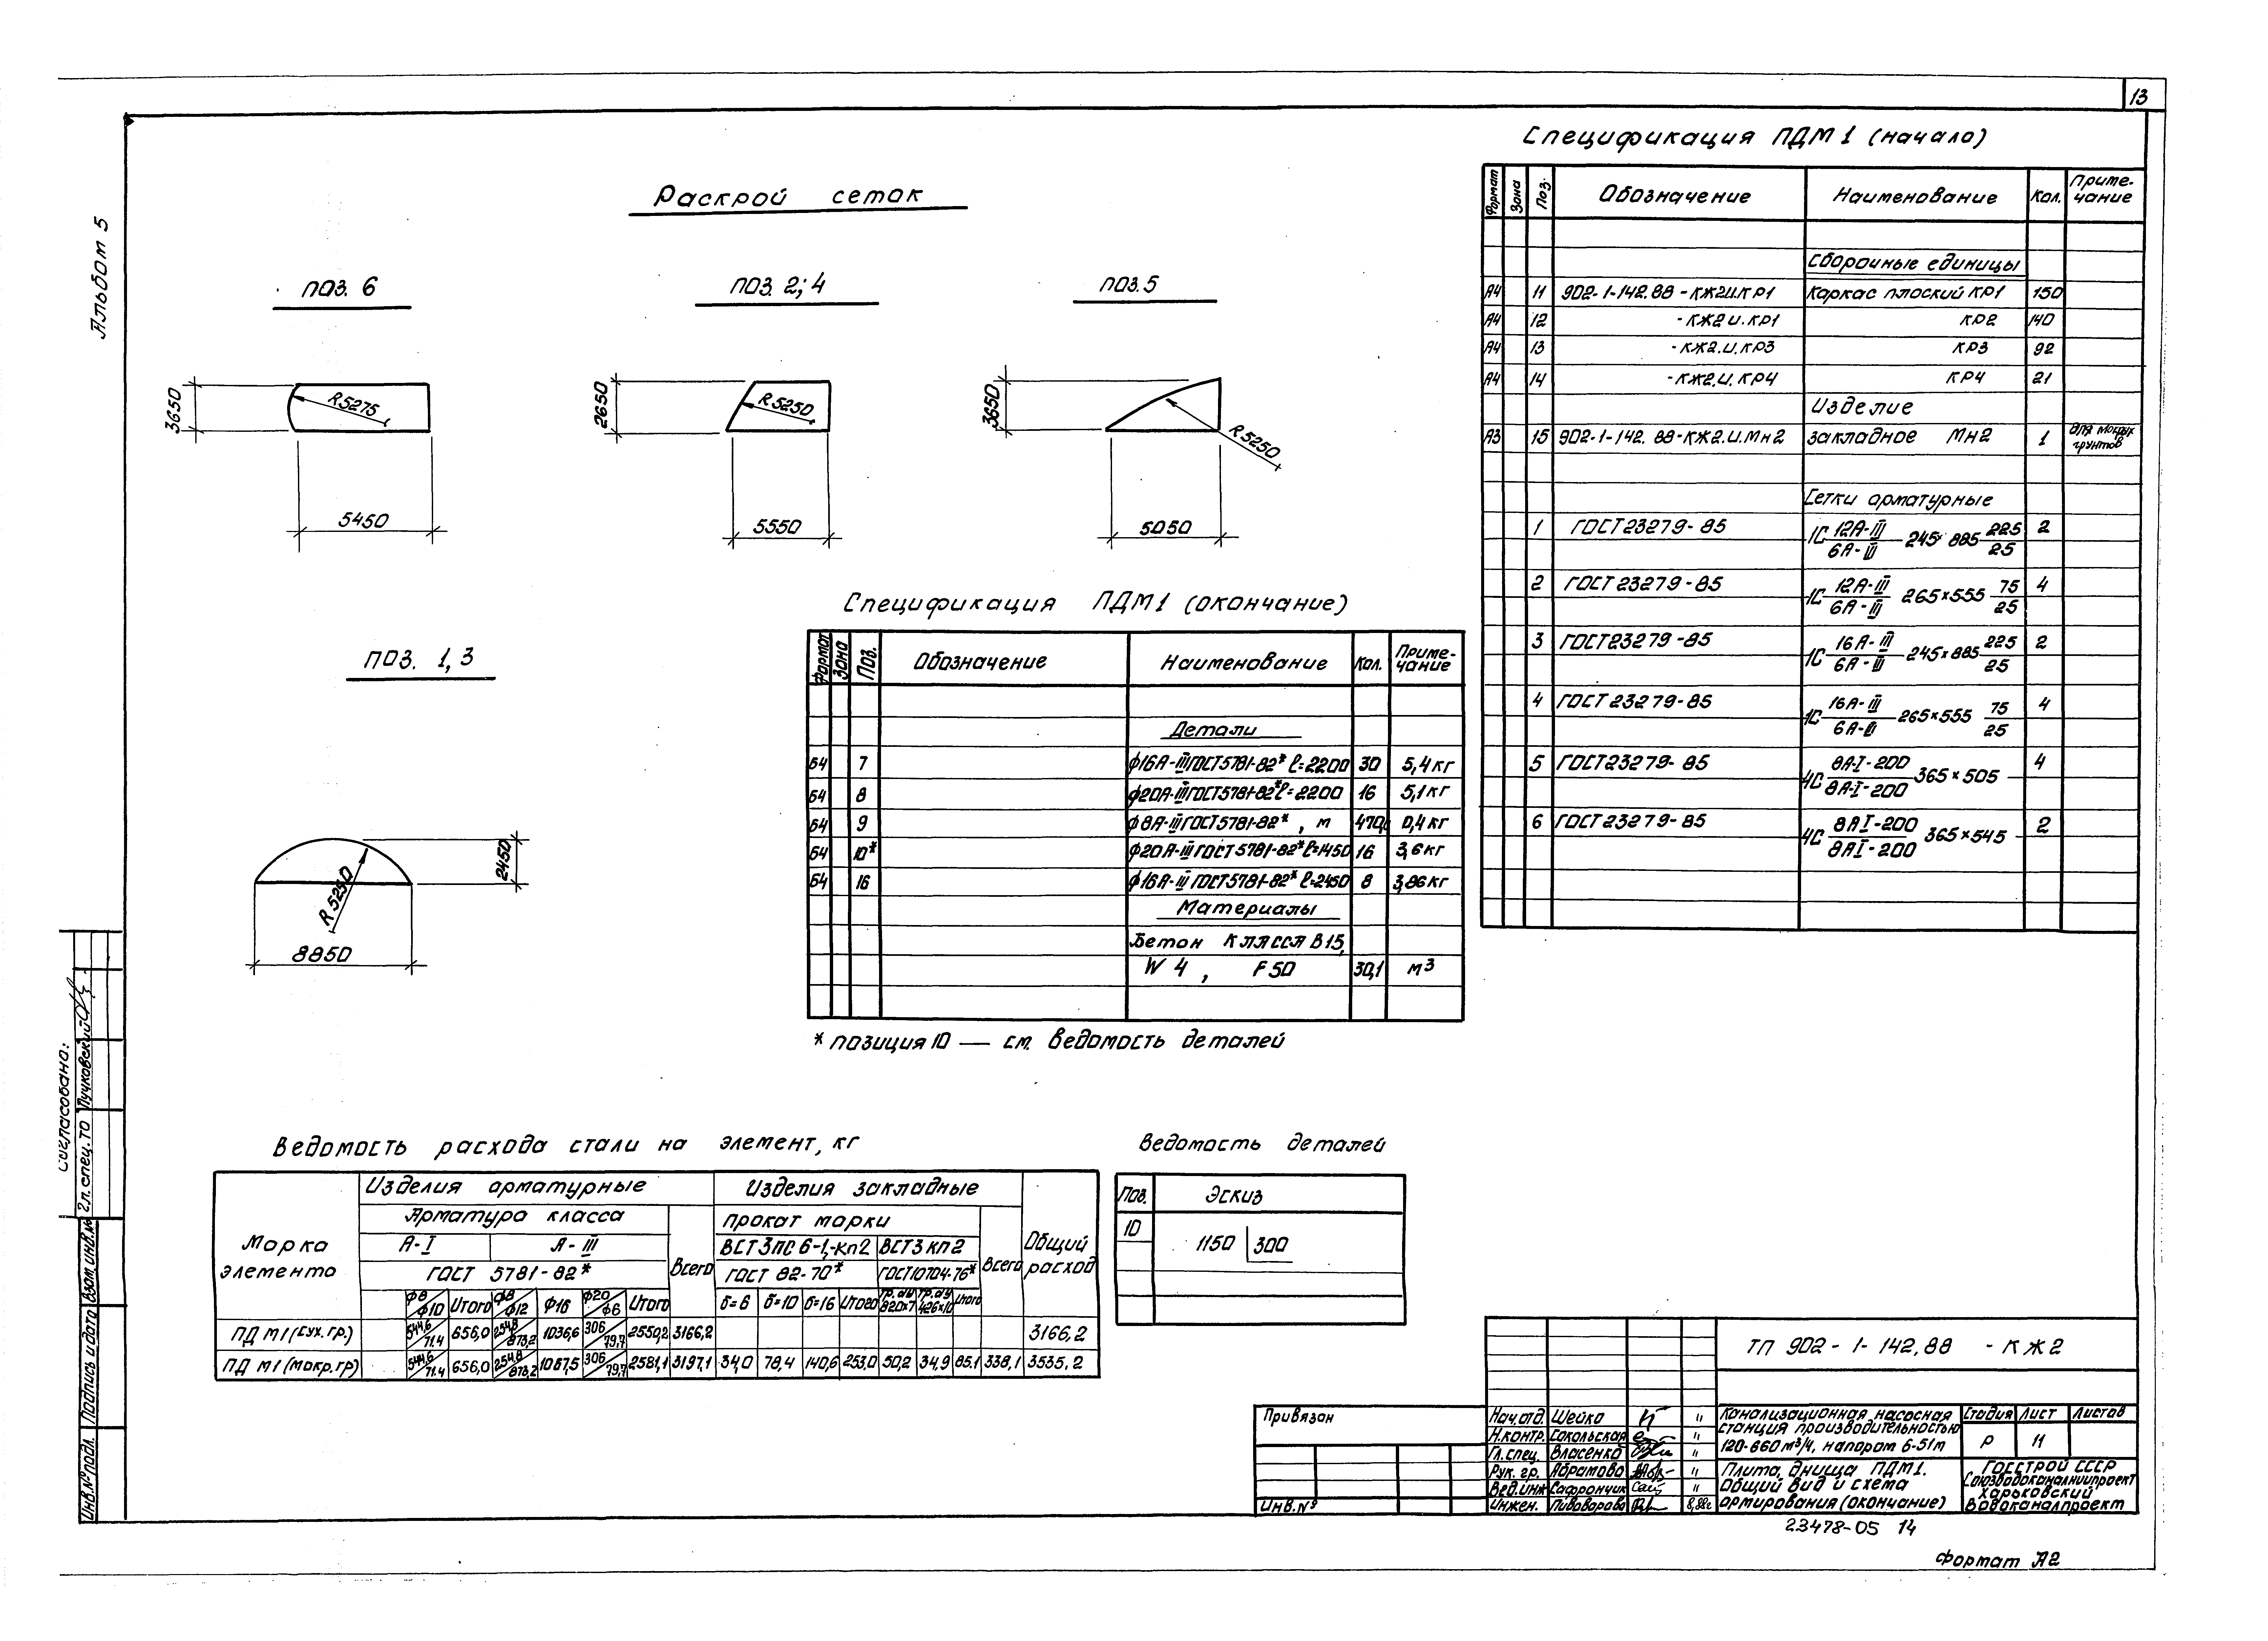 13
Альбом 5
Раскрой сеток
поз. 6
3650
R5275
5450
поз. 2; 4
2650
R5250
5550
поз. 5
3650
R5250
5050
поз. 1, 3
2450
R5250
8850
Спецификация ПДМ1 (начало)
Формат Зона Поз. Обозначение Наименование Кол. Приме-чание
Сборочные единицы
А4 11 902-1-142.88-КЖ2И.КР1 Каркас плоский КР1 150
А4 12 -КЖ2И.КР1 КР2 140
А4 13 -КЖ2.И.КР3 КР3 92
А4 14 -КЖ2.И.КР4 КР4 21
Изделие
А3 15 902-1-142.88-КЖ2.И.Мн2 закладное Мн2 1 для мокрых грунтов
Сетки арматурные
1 ГОСТ 23279-85 1С 12А-III/6А-III 245×885 225/25 2
2 ГОСТ 23279-85 1С 12А-III/6А-III 265×555 75/25 4
3 ГОСТ 23279-85 1С 16А-III/6А-III 245×885 225/25 2
4 ГОСТ 23279-85 1С 16А-III/6А-III 265×555 75/25 4
5 ГОСТ 23279-85 4С 8А-I-200/8А-I-200 365×505 4
6 ГОСТ 23279-85 4С 8АI-200/8АI-200 365×545 2
Спецификация ПДМ1 (окончание)
Формат Зона Поз. Обозначение Наименование Кол. Приме-чание
Детали
Б4 7 ф16А-III ГОСТ 5781-82* ℓ=2200 30 5,4кг
Б4 8 ф20А-III ГОСТ 5781-82* ℓ=2200 16 5,1кг
Б4 9 ф8А-III ГОСТ 5781-82*, м 0,4кг
Б4 10* ф20А-III ГОСТ 5781-82* ℓ=1450 16 3,6кг
Б4 16 ф16А-III ГОСТ 5781-82* ℓ=2450 8 3,86кг
Материалы
Бетон класса В15,
W4, F50 30,1 м3
* позиция 10 — см. ведомость деталей
Ведомость расхода стали на элемент, кг
Марка элемента Изделия арматурные Изделия закладные Общий расход
Арматура класса Всего Прокат марки Всего
А-I А-III ВСТ3пс6-1,-кп2 ВСТ3кп2
ГОСТ 5781-82* ГОСТ 82-70* ГОСТ10704-76*
ф8/ф10 Итого ф8/ф12 ф16 ф20/ф6 Итого б=6 б=10 б=16 Итого Тр.ду 820×7 Тр.ду 426×10 Итого
ПДМ1 (сух.гр.) 544,6/71.4 656,0 254,8/873,2 1036,6 306/79,7 2550,2 3166,2 3166,2
ПДМ1 (мокр.гр) 544,6/71.4 656,0 254,8/873,2 1067,5 306/79,7 2581,1 3197,1 34,0 78,4 140,6 253,0 50,2 34,9 85,1 338,1 3535,2
Ведомость деталей
Поз. Эскиз
10 1150 300
Согласовано:
Гл.спец.ТО Пучковский
Взам.инв.№
Подпись и дата
Инв.№ подл.
Привязан
Инв.№
ТП 902-1-142.88 -КЖ2
Нач.отд. Шейко "
Н.контр. Сокольская "
Гл.спец. Власенко "
Рук. гр. Абрамова "
Вед.инж Сафрончик "
Инжен. Пивоварова 8,88г
Канализационная насосная
станция производительностью
120-660 м³/ч, напором 6-51м
Стадия Лист Листов
Р 11
Плита днища ПДМ1.
Общий вид и схема
армирования (окончание)
Госстрой СССР
Союзводоканалниипроект
Харьковский
Водоканалпроект
23478-05 14
Формат А2